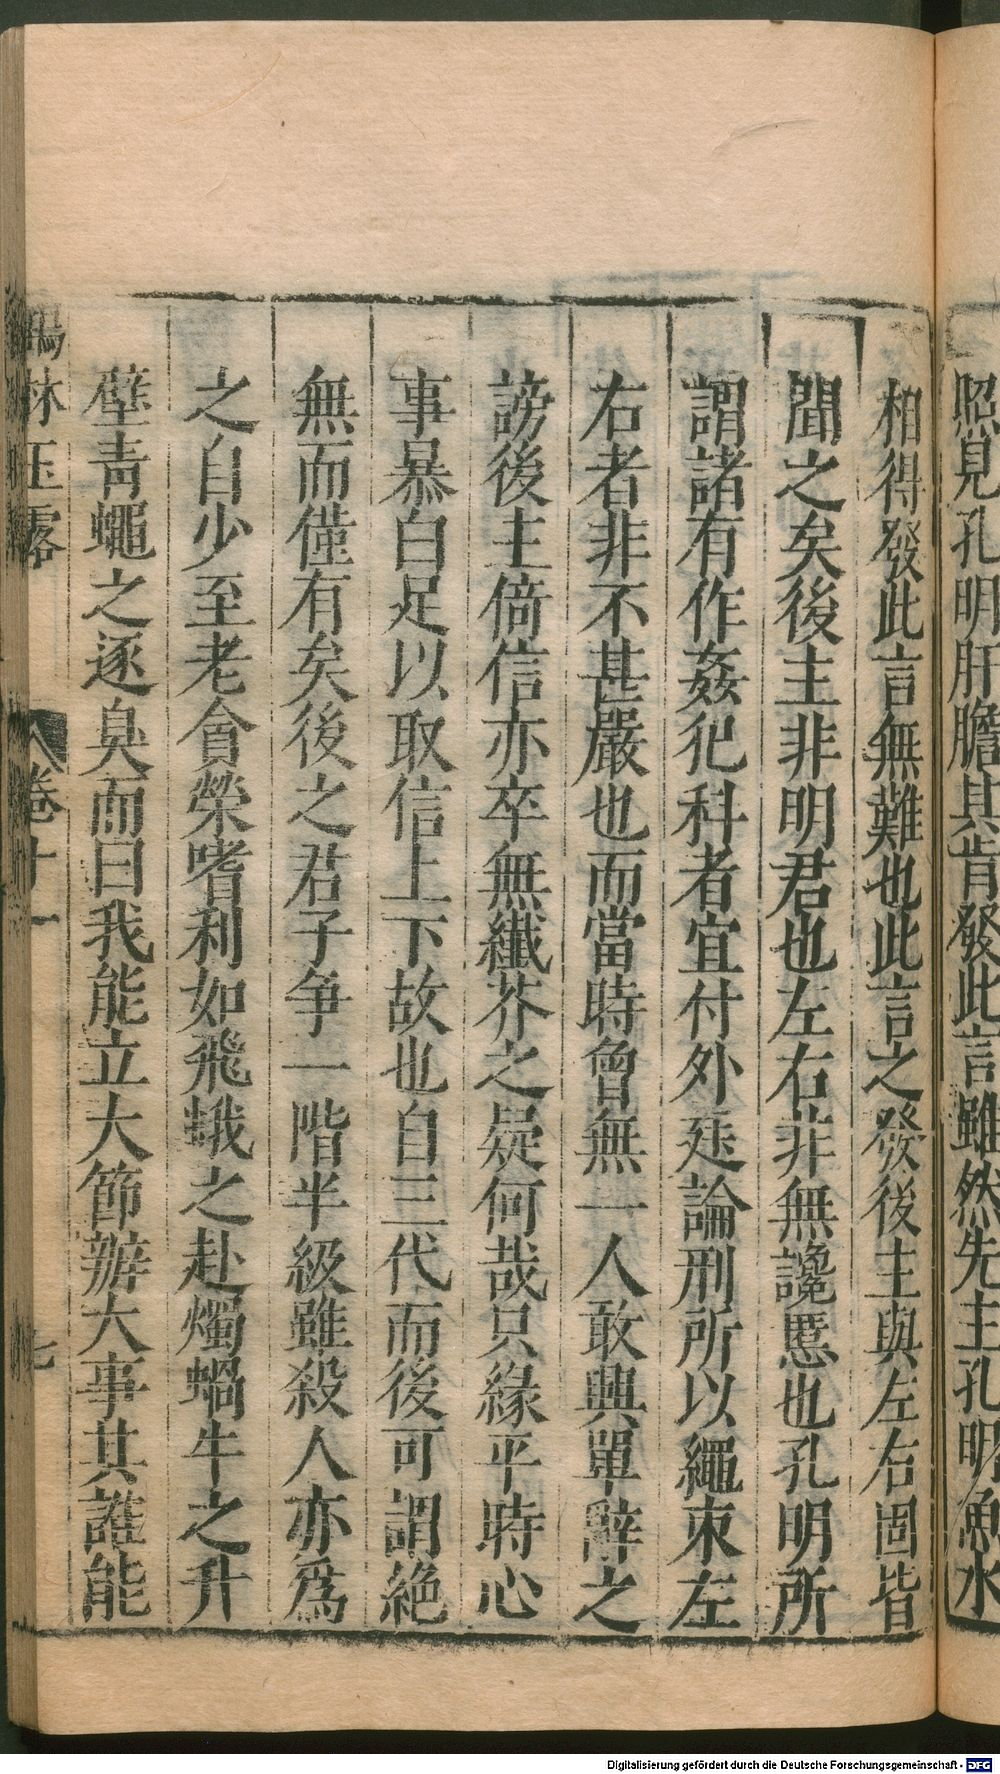 照見孔明肝膽其肯發此言雖然先主孔明魚水
相得發此言無難也此言之發後主與左右固皆
聞之矣後主非明君也左右非無讒慝也孔明所
謂諸有作姦犯科者宜付外廷論刑所以繩束左
右者非不甚嚴也而當時曾無一人敢興單辭之
謗後主倚信亦卒無纖芥之疑何哉只緣平時心
事暴白足以取信上下故也自三代而後可謂絕
無而僅有矣後之君子爭一階半級雖殺人亦爲
之自少至老貪榮嗜利如飛蛾之赴燭蝸牛之升
壁青蠅之逐臭而曰我能立大節辦大事其誰能
鶴林玉露 卷十一 七
Digitalisierung gefördert durch die Deutsche Forschungsgemeinschaft - DFG